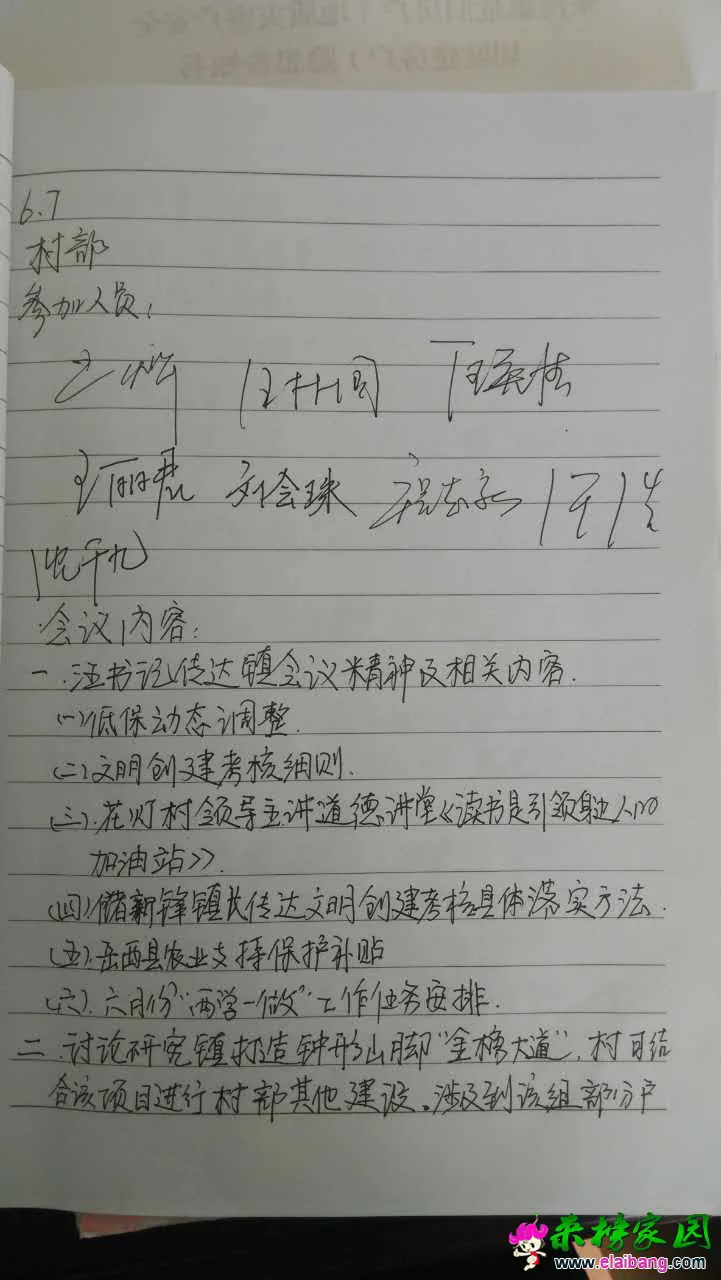 6.7
村部
参加人员：
刘会珠
会议内容：
一.汪书记传达镇会议精神及相关内容.
(一)低保动态调整.
(二)文明创建考核细则.
(三).花灯村领导主讲道德讲堂《读书是引领人的
加油站》.
(四)储新锋镇长传达文明创建考核具体落实方法.
(五).岳西县农业支持保护补贴
(六).六月份"两学一做"工作任务安排.
二.讨论研究镇打造钟形山脚"金榜大道",村可结
合该项目进行村部其他建设。涉及到该组部分户
来榜家园
www.elaibang.com